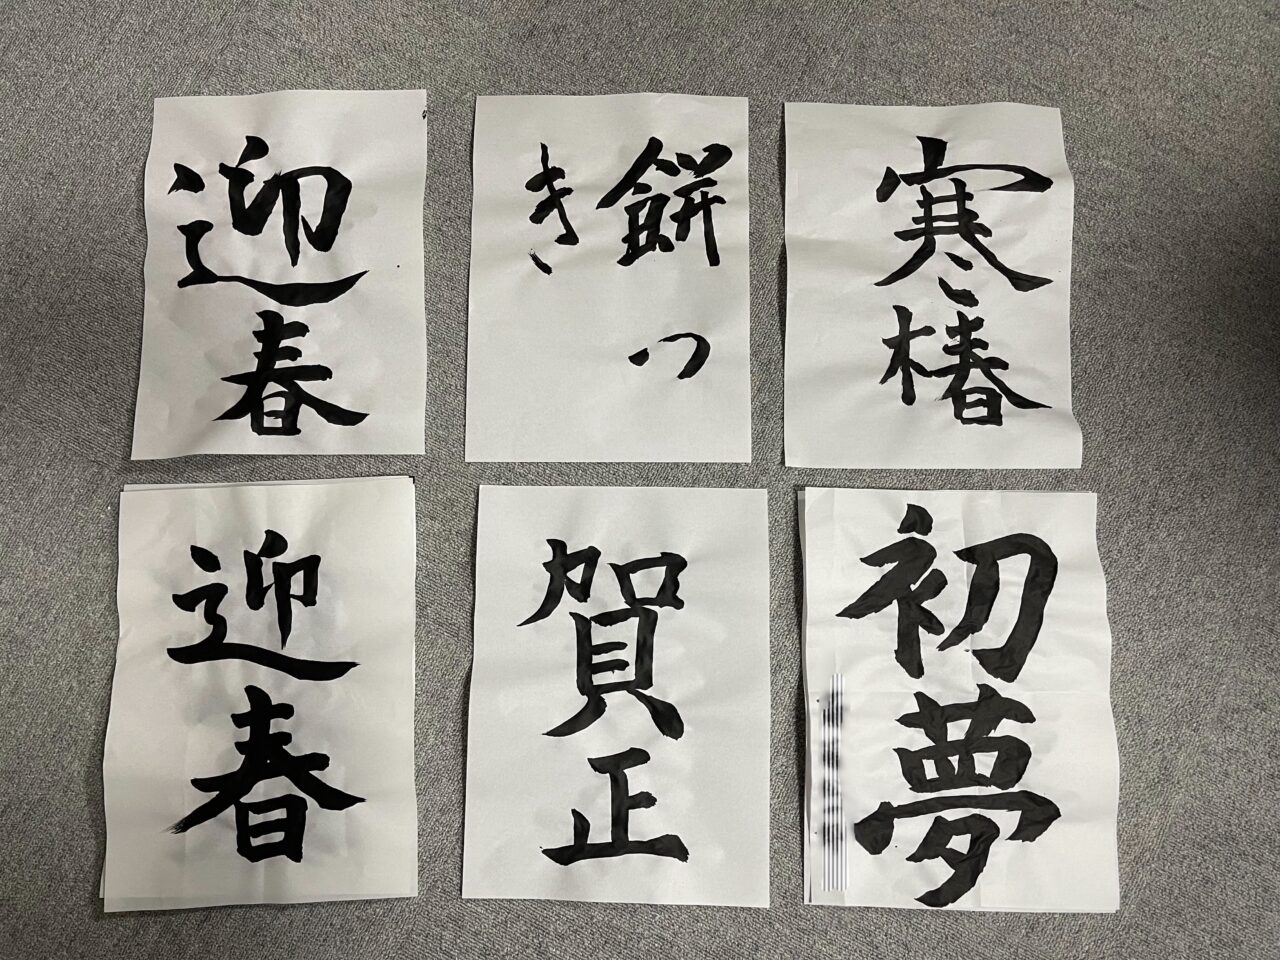 迎春
餅つ
き
寒椿
迎春
賀正
初夢